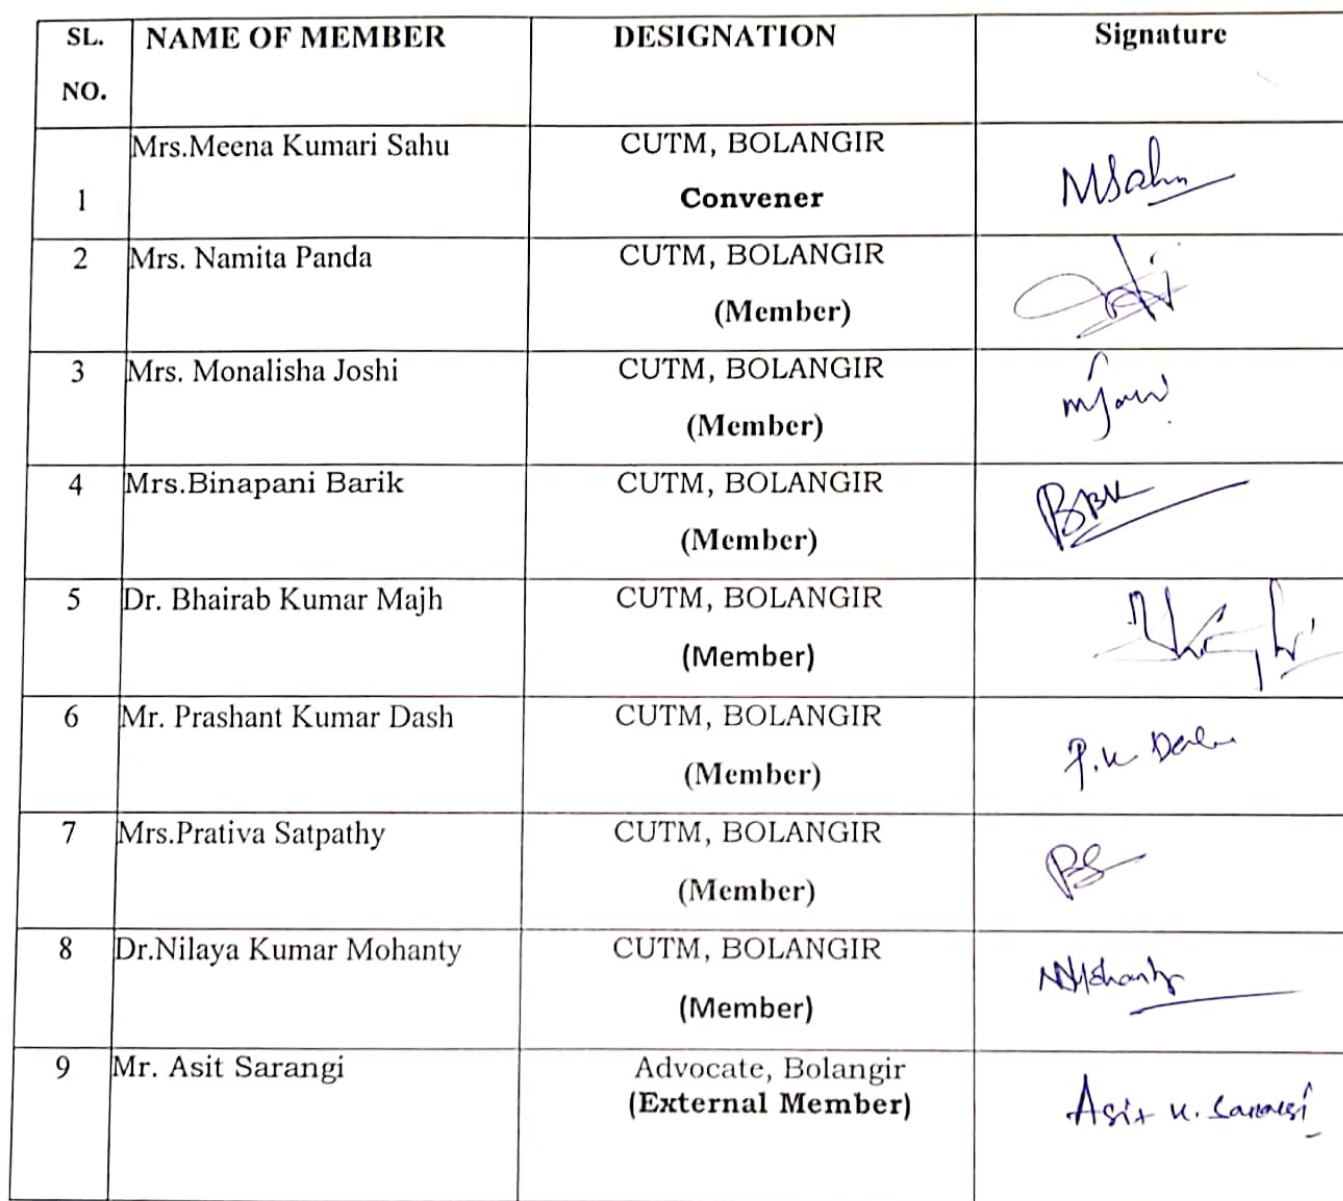 SL. NO. NAME OF MEMBER DESIGNATION Signature
1 Mrs.Meena Kumari Sahu CUTM, BOLANGIR
Convener
MSahu
2 Mrs. Namita Panda CUTM, BOLANGIR
(Member)
3 Mrs. Monalisha Joshi CUTM, BOLANGIR
(Member)
4 Mrs.Binapani Barik CUTM, BOLANGIR
(Member)
5 Dr. Bhairab Kumar Majh CUTM, BOLANGIR
(Member)
6 Mr. Prashant Kumar Dash CUTM, BOLANGIR
(Member)
P.K Dash
7 Mrs.Prativa Satpathy CUTM, BOLANGIR
(Member)
PS
8 Dr.Nilaya Kumar Mohanty CUTM, BOLANGIR
(Member)
NMohanty
9 Mr. Asit Sarangi Advocate, Bolangir
(External Member)
Asit K. Sarangi